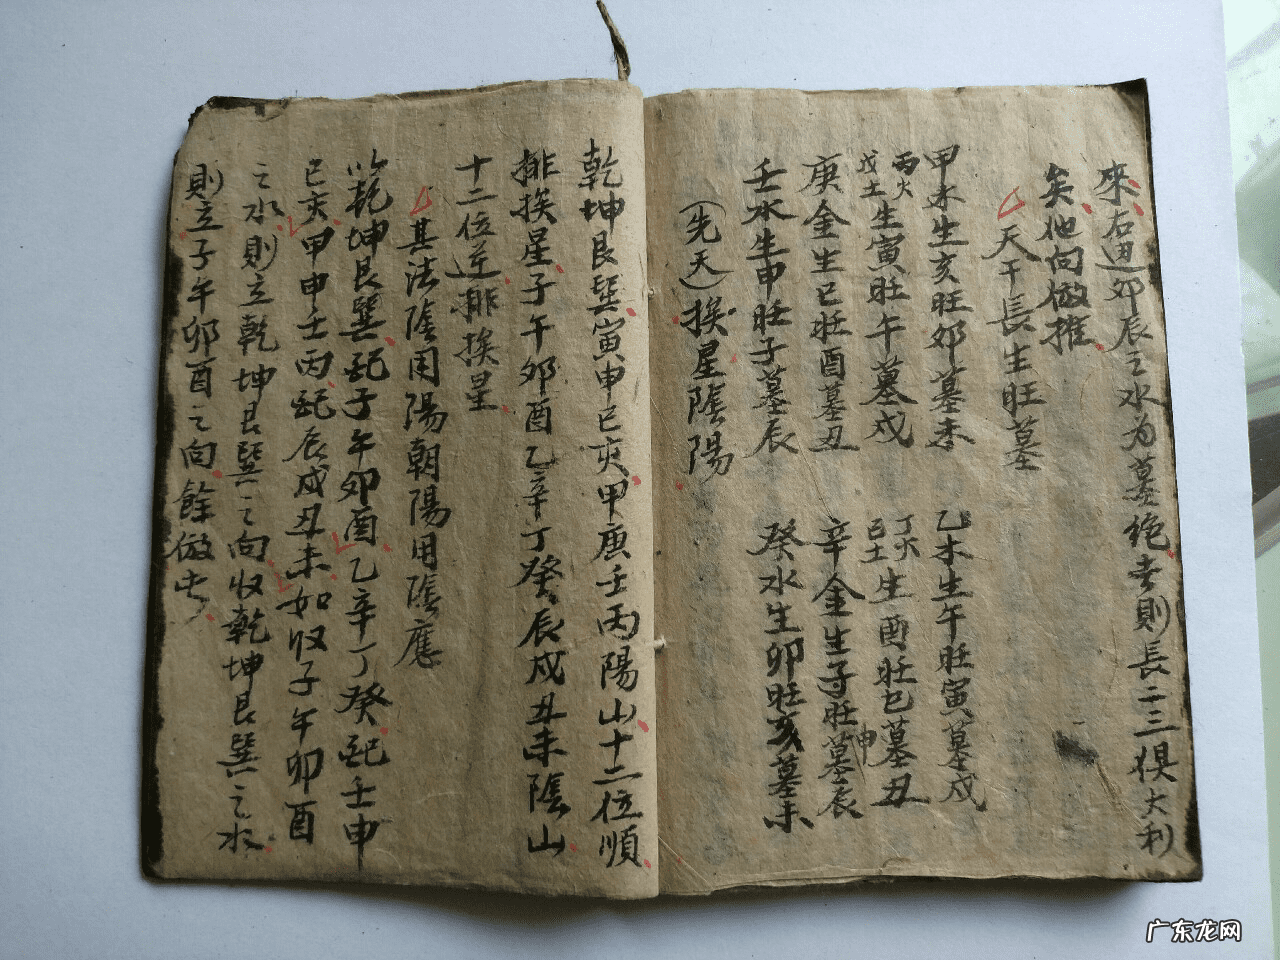 來右邊卯辰之水为墓绝方則長二三俱大利
矣他向倣推
天干長生旺墓
甲木生亥旺卯墓未 乙木生午旺寅墓戌
丙火戊土生寅旺午墓戌 丁火己土生酉旺巳墓丑
庚金生巳旺酉墓丑 辛金生子旺申墓辰
壬水生申旺子墓辰 癸水生卯旺亥墓未
(先天)挨星陰陽
乾坤艮巽寅申巳亥甲庚壬丙陽山十二位順
排挨星子午卯酉乙辛丁癸辰戌丑未陰山
十二位逆排挨星
其法陰用陽朝陽用陰應
以乾坤艮巽配子午卯酉乙辛丁癸配壬申
巳亥甲申壬丙配辰戌丑未如收子午卯酉
之水則立乾坤艮巽之向收乾坤艮巽之水
則立子午卯酉之向餘倣此
广东龙网